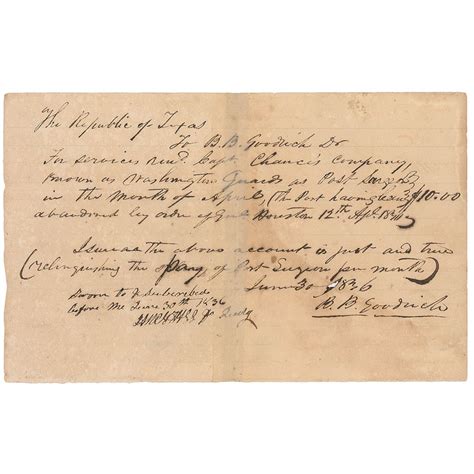 The Republic of Texas
To B. B. Goodrich Dr
For services rend. Capt. Chance's company,
known as Washington Guards as Post Surgeon
in the month of April, (the Post having been $10.00
abandoned by order of Genl Houston 12th Apl. 1836)
I swear the above account is just and true
(relinquishing the pay of Post Surgeon per month)
June 30 1836
B. B. Goodrich
Sworn to & subscribed
before me June 30th 1836